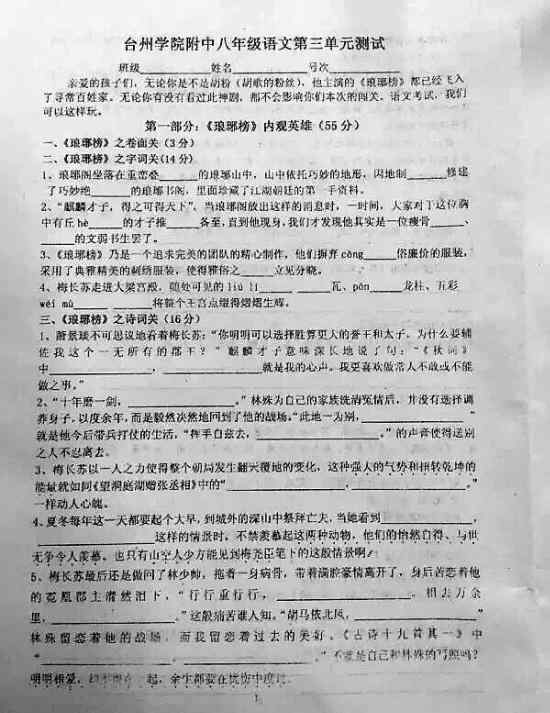 台州学院附中八年级语文第三单元测试
班级________姓名________号次________
亲爱的孩子们，无论你是不是胡粉（胡歌的粉丝），他主演的《琅琊榜》都已经飞入
了寻常百姓家。无论你有没有看过此神剧，都不会影响你们本次的闯关。语文考试，我们
可以这样玩。
第一部分：《琅琊榜》内观英雄（55分）
一、《琅琊榜》之卷面关（3分）
二、《琅琊榜》之字词关（14分）
1、琅琊阁坐落在重峦叠______的琅琊山中，山中依托巧妙的地形，因地制______修建
了巧妙绝______的琅琊书阁，里面珍藏了江湖朝廷的第一手资料。
2、“麒麟才子，得之可得天下”，当琅琊阁放出这样的消息时，一时间，大家对于这位胸
中有丘hè______的才子推______备至，直到他现身，我们才发现他其实是一位瘦骨______、
______的文弱书生罢了。
3、《琅琊榜》乃是一个追求完美的团队的精心制作，他们摒弃cōng______俗廉价的服装，
采用了典雅精美的刺绣服装，使得雅俗之______立见分晓。
4、梅长苏走进大梁宫殿，随处可见的liú lí______ ______瓦、pán______龙柱、五彩
wéi mù______ ______将整个王宫点缀得熠熠生辉。
三、《琅琊榜》之诗词关（16分）
1、萧景琰不可思议地看着梅长苏：“你明明可以选择胜算更大的誉王和太子，为什么要辅
佐我这个一无所有的郡王？”麒麟才子意味深长地说了句：“《秋词》
中____________，____________就是我的心声。我更喜欢做常人不敢或不能
做之事。”
2、“十年磨一剑，____________。”林殊为自己的家族洗清冤情后，并没有选择调
养身子，以度余年，而是毅然决然地回到了他的战场。“此地一为别，____________”
就是他今后带兵打仗的生活，“挥手自兹去，____________。”的声音使得送别
之人不忍离去。
3、梅长苏以一人之力使得整个朝局发生翻天覆地的变化，这种强人的气势和扭转乾坤的
能量就如同《望洞庭湖赠张丞相》中的“____________，____________。”
一样动人心魄。
4、夏冬每年这一天都要起个大早，到城外的深山中祭拜亡夫，当她看到____________，
____________这样的情景时，不禁羡慕起这两种动物，他们的怡然自得、与世
无争令人羡慕。也只有山空人少方能见到梅尧臣笔下的这般情景啊！
5、梅长苏最后还是做回了林少帅，拖着一身病骨，带着满腔豪情离开了，身后苦恋着他
的霓凰郡主潸然泪下，“行行重行行，____________。相去万余
里，____________。”这般痛苦谁人知。“胡马依北风，____________”
林殊留恋着他的战场，而我留恋着过去的美好。《古诗十九首其一》中
“____________，____________”不就是自己和林殊的写照吗？
明明相爱，却不得在一起，余生都要在忧伤中度过。
1